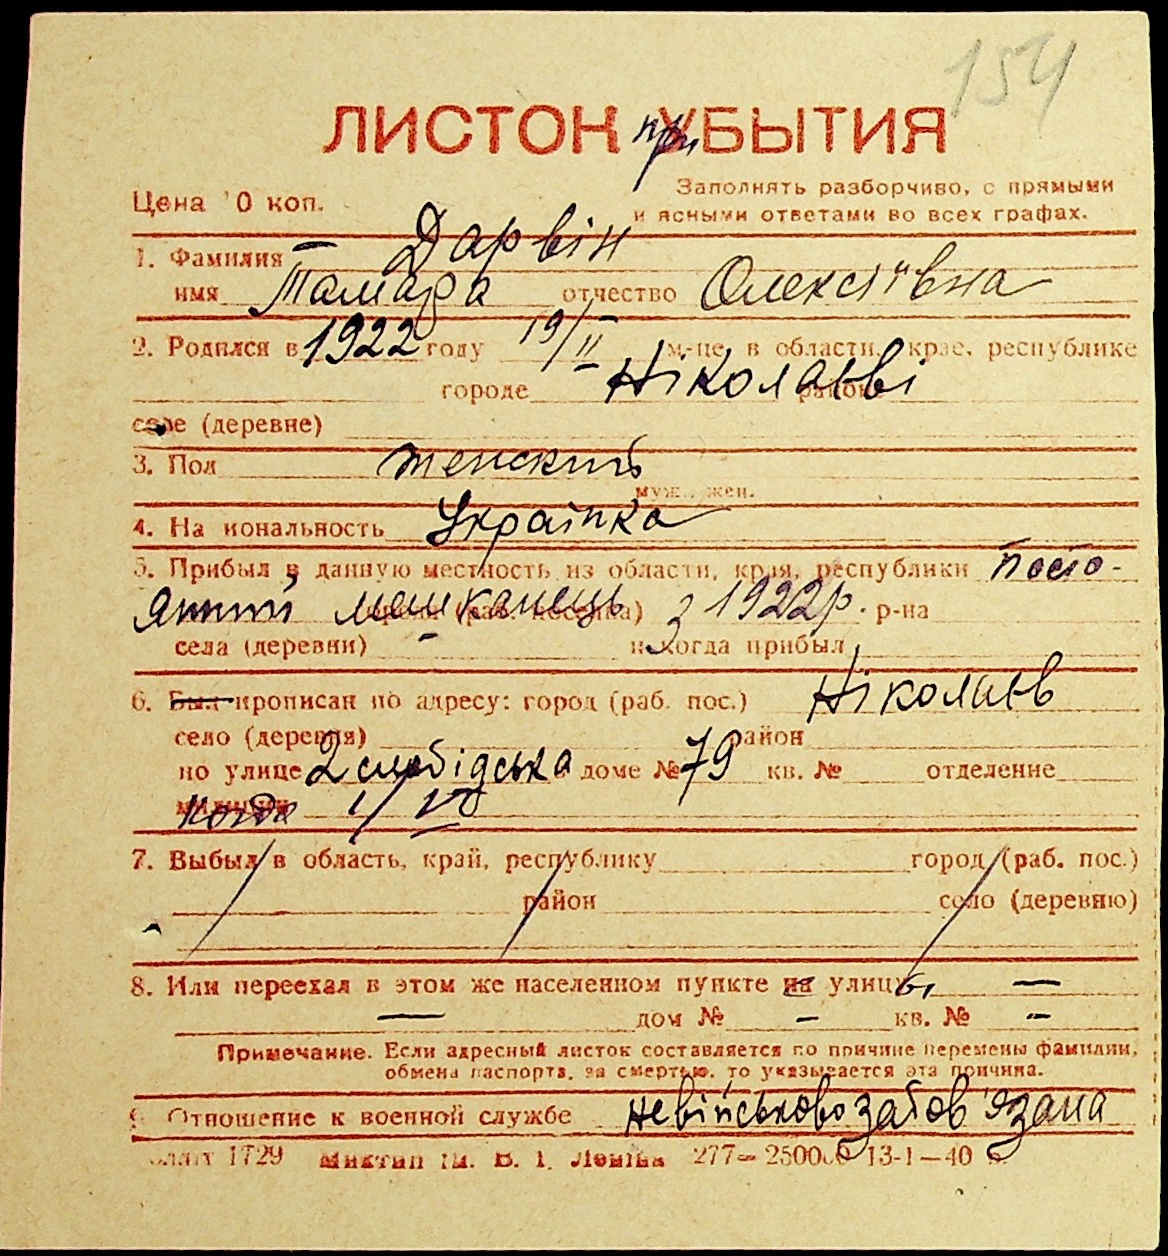 154
ЛИСТОК при УБЫТИЯ
Цена 10 коп.
Заполнять разборчиво, с прямыми
и ясными ответами во всех графах.
1. Фамилия Дарвін
имя Тамара отчество Олексіївна
2. Родился в 1922 году 19/II м-це, в области, крае, республике
городе Ніколаєві районе
селе (деревне)
3. Пол женский
муж., жен.
4. Национальность Українка
5. Прибыл в данную местность из области, края, республики посто-
янний мешканець (раб. поселка) з 1922 р. р-на
села (деревни) - и когда прибыл
6. Был прописан по адресу: город (раб. пос.) Ніколаєв
село (деревня) район
по улице 2 слобідська доме № 79 кв. № отделение
милиции когда 1/IV
7. Выбыл в область, край, республику город (раб. пос.)
район село (деревню)
8. Или переехал в этом же населенном пункте на улицы, —
— дом № - кв. № -
Примечание. Если адресный листок составляется по причине перемены фамилии,
обмена паспорта, за смертью, то указывается эта причина.
9. Отношение к военной службе невійськовозабов'язана
1729 им. В. І. Леніна 277— 250000 13-1—40